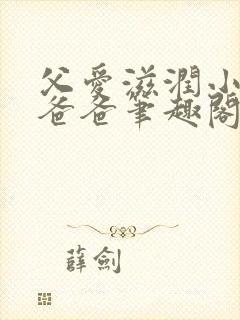 父愛滋潤小
爸爸筆趣閣
薛劍